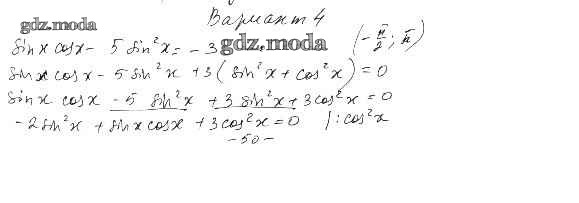 Вариант 4
gdz.moda
sin x cos x - 5 sin²x = - 3 gdz.moda (-π/2; π)
sin x cos x - 5 sin²x + 3 (sin²x + cos²x) = 0
sin x cos x - 5 sin²x + 3 sin²x + 3cos²x = 0
- 2 sin²x + sin x cos x + 3 cos²x = 0 /: cos²x
- 50 -